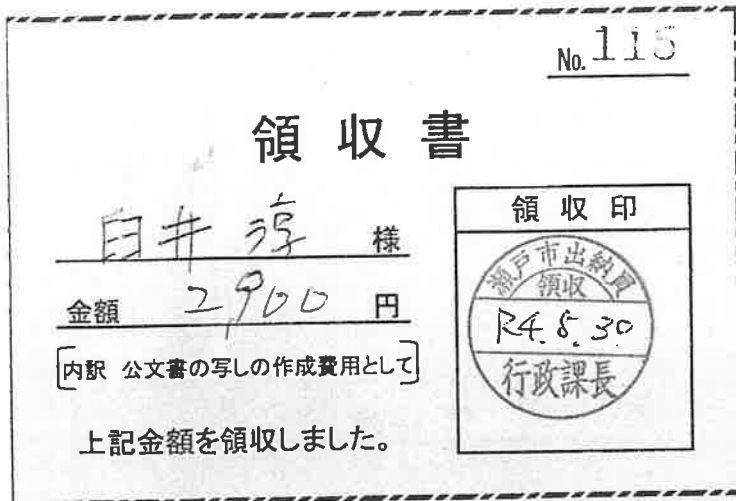 No. 115
領収書
臼井 淳 様
金額 2,900 円
[内訳 公文書の写しの作成費用として]
上記金額を領収しました。
領収印
瀬戸市出納員
領収
R4.8.30
行政課長